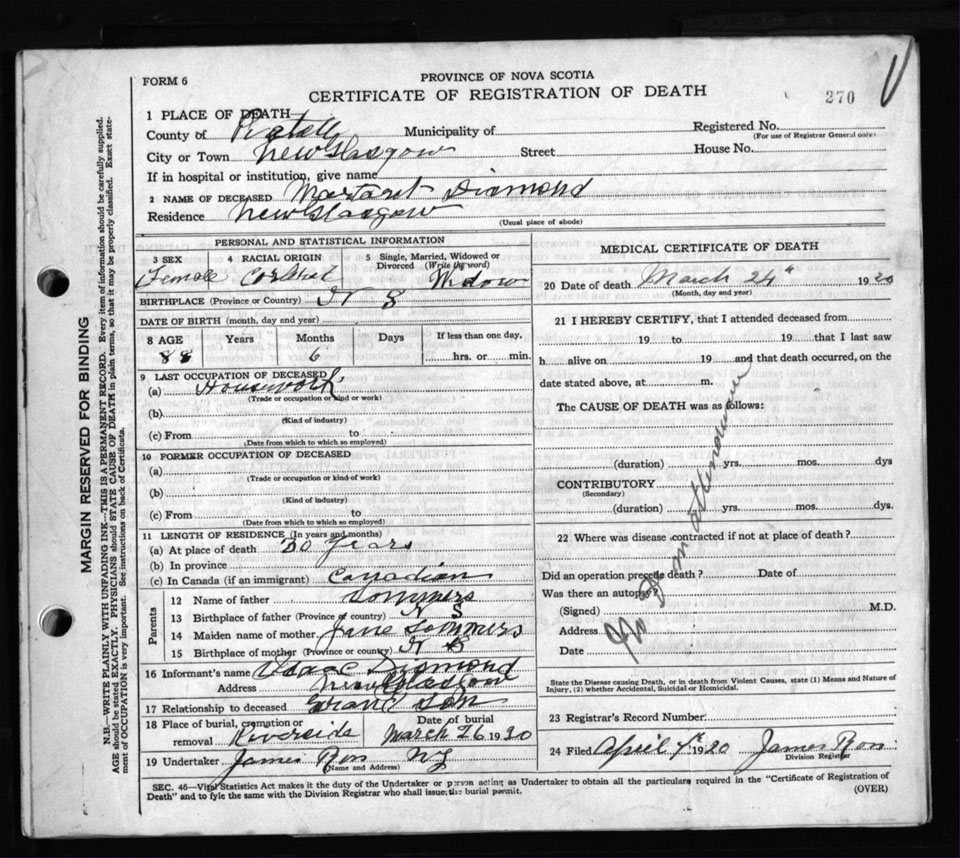 FORM 6
PROVINCE OF NOVA SCOTIA
CERTIFICATE OF REGISTRATION OF DEATH
270
1 PLACE OF DEATH
County of Municipality of Registered No.
(For use of Registrar General only)
City or Town New Glasgow Street House No.
If in hospital or institution, give name
2 NAME OF DECEASED Margaret Diamond
Residence New Glasgow
(Usual place of abode)
PERSONAL AND STATISTICAL INFORMATION
3 SEX 4 RACIAL ORIGIN 5 Single, Married, Widowed or Divorced (Write the word)
Female Widow
BIRTHPLACE (Province or Country) N S
DATE OF BIRTH (month, day and year)
8 AGE Years Months Days If less than one day,
88 6 hrs. or min.
9 LAST OCCUPATION OF DECEASED
(a) Housework
(Trade or occupation or kind or work)
(b)
(Kind of industry)
(c) From to
(Date from which to which so employed)
10 FORMER OCCUPATION OF DECEASED
(a)
(Trade or occupation or kind of work)
(b)
(Kind of industry)
(c) From to
(Date from which to which so employed)
11 LENGTH OF RESIDENCE (In years and months)
(a) At place of death 30 years
(b) In province
(c) In Canada (if an immigrant) Canadian
Parents
12 Name of father Sommers
13 Birthplace of father (Province or country) N S
14 Maiden name of mother Jane Sommers
15 Birthplace of mother (Province or country) N S
16 Informant's name Isaac Diamond
Address New Glasgow
17 Relationship to deceased Grand Son
18 Place of burial, cremation or removal Riverside
Date of burial March 26 1930
19 Undertaker James Ross NG
(Name and Address)
MEDICAL CERTIFICATE OF DEATH
20 Date of death March 24th 1930
(Month, day and year)
21 I HEREBY CERTIFY, that I attended deceased from
19 to 19 that I last saw
h alive on 19 and that death occurred, on the
date stated above, at m.
The CAUSE OF DEATH was as follows:
(duration) yrs. mos. dys
CONTRIBUTORY
(Secondary)
(duration) yrs. mos. dys.
22 Where was disease contracted if not at place of death?
Did an operation precede death? Date of
Was there an autopsy?
(Signed) M.D.
Address
Date
State the Disease causing Death, or in death from Violent Causes, state (1) Means and Nature of
Injury, (2) whether Accidental, Suicidal or Homicidal.
23 Registrar's Record Number
24 Filed April 7th 1930 James Ross
Division Registrar
SEC. 46—Vital Statistics Act makes it the duty of the Undertaker or person acting as Undertaker to obtain all the particulars required in the "Certificate of Registration of
Death" and to fyle the same with the Division Registrar who shall issue the burial permit.
(OVER)
MARGIN RESERVED FOR BINDING
N.B.—WRITE PLAINLY WITH UNFADING INK—THIS IS A PERMANENT RECORD. Every item of information should be carefully supplied.
AGE should be stated EXACTLY. PHYSICIANS should STATE CAUSE OF DEATH in plain terms, so that it may be properly classified. Exact statement of OCCUPATION is very important. See instructions on back of Certificate.